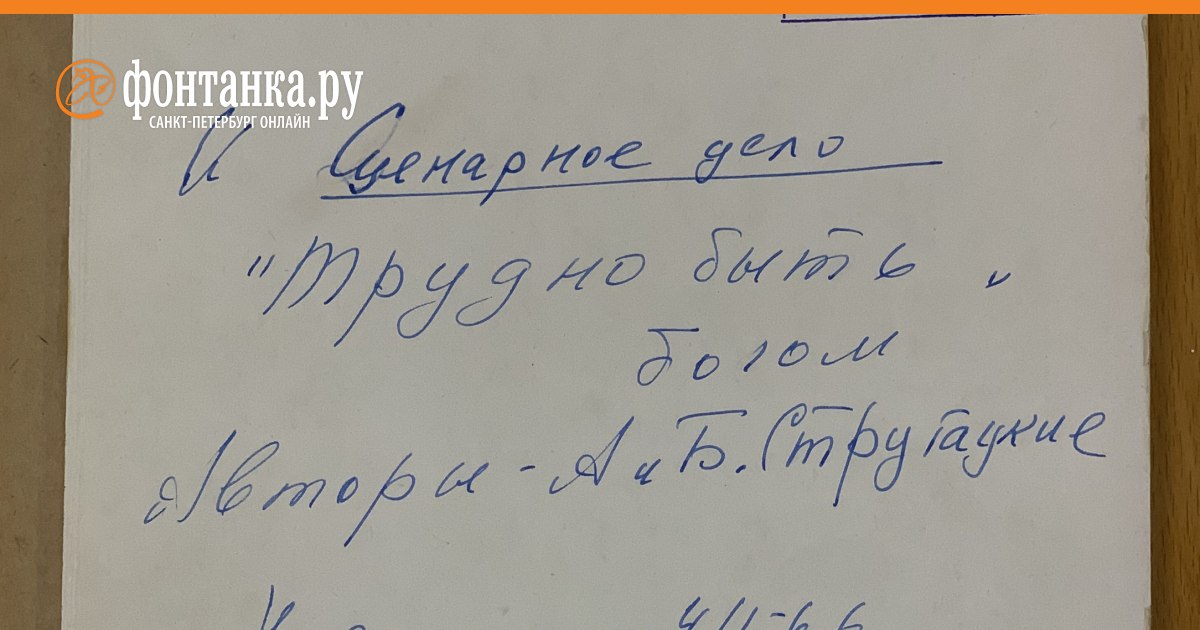 фонтанка.ру
САНКТ-ПЕТЕРБУРГ ОНЛАЙН
Сценарное дело
"Трудно быть "
богом
Авторы - А и Б. Стругацкие